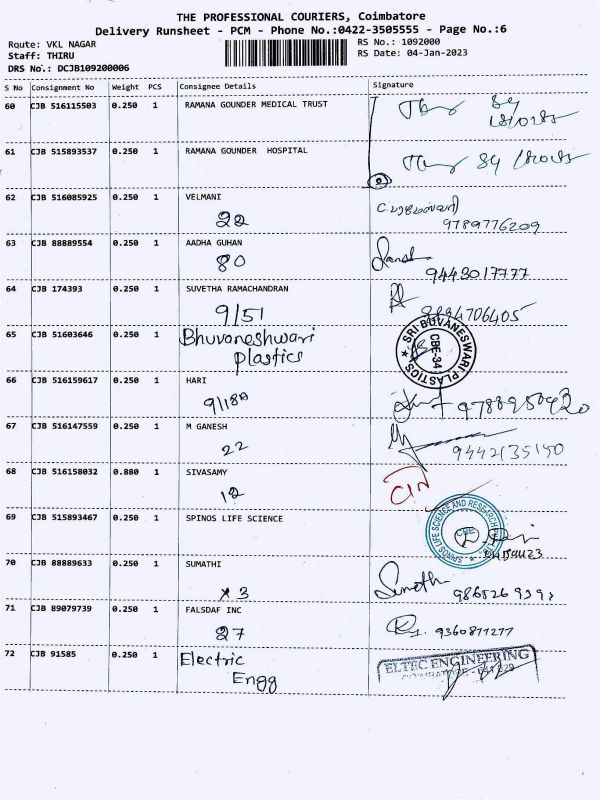 THE PROFESSIONAL COURIERS, Coimbatore
Delivery Runsheet - PCM - Phone No.:0422-3505555 - Page No.:6
Route: VKL NAGAR RS No.: 1092000
Staff: THIRU RS Date: 04-Jan-2023
DRS No.: DCJB109200006
S No Consignment No Weight PCS Consignee Details Signature
60 CJB 516115503 0.250 1 RAMANA GOUNDER MEDICAL TRUST
61 CJB 515893537 0.250 1 RAMANA GOUNDER HOSPITAL
62 CJB 516085925 0.250 1 VELMANI
22 9789776209
63 CJB 88889554 0.250 1 AADHA GUHAN
80 9443017777
64 CJB 174393 0.250 1 SUVETHA RAMACHANDRAN
9/51
65 CJB 51603646 0.250 1 Bhuvaneshwari
plastics
SRI BUVANESWARI PLASTICS
CBE-34
66 CJB 516159617 0.250 1 HARI
9/18A
67 CJB 516147559 0.250 1 M GANESH
22
68 CJB 516158032 0.880 1 SIVASAMY
12
69 CJB 515893467 0.250 1 SPINOS LIFE SCIENCE
SPINOS LIFE SCIENCE AND RESEARCH
CBE
70 CJB 88889633 0.250 1 SUMATHI
x3
71 CJB 89079739 0.250 1 FALSDAF INC
27
72 CJB 91585 0.250 1 Electric
Engg
ELTEC ENGINEERING